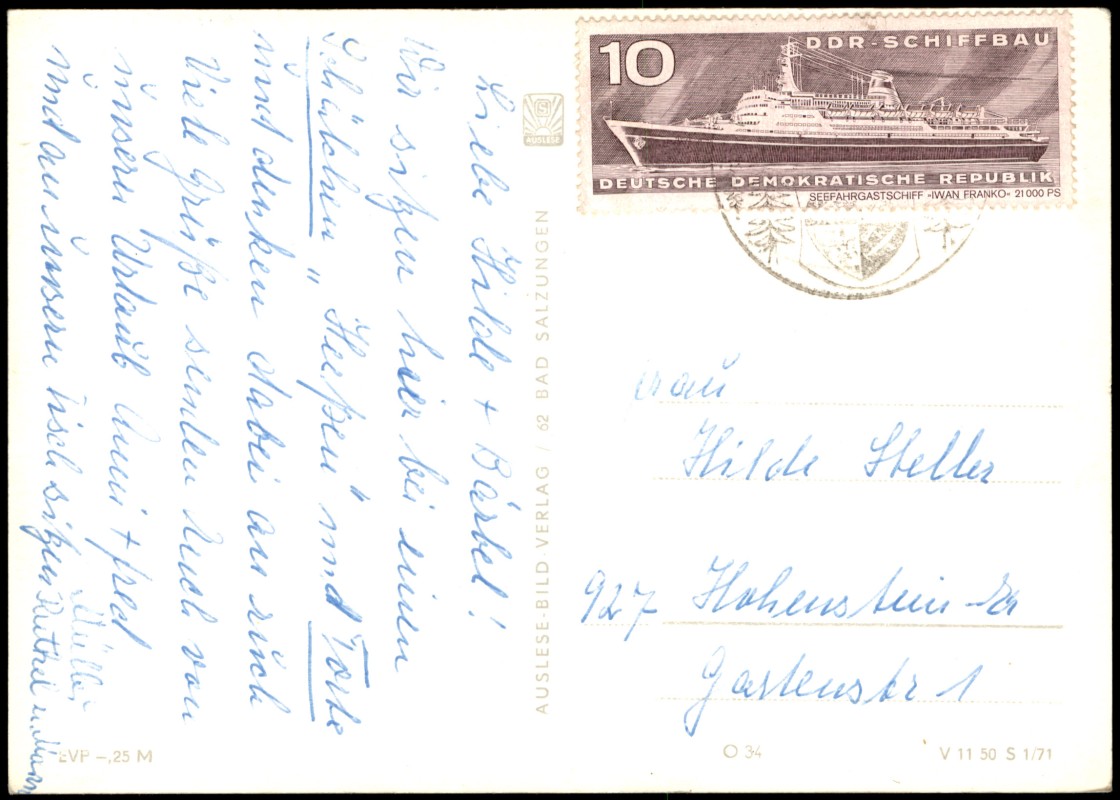 Liebe Hilde + Bärbel!
Wir sitzen hier bei einen
Schälchen „Heeßen“ und Torte
und denken dabei an euch
Viele Grüße senden Euch von
unsern Urlaub Anni + Fred
Müller
und an unsern Tisch sitzen
AUSLESE
AUSLESE-BILD-VERLAG / 62 BAD SALZUNGEN
10
DDR-SCHIFFBAU
DEUTSCHE DEMOKRATISCHE REPUBLIK
SEEFAHRGASTSCHIFF »IWAN FRANKO« 21000 PS
Frau
Hilde Steller
927 Hohenstein-Er
Gartenstr 1
EVP –,25 M
O 34
V 11 50 S 1/71